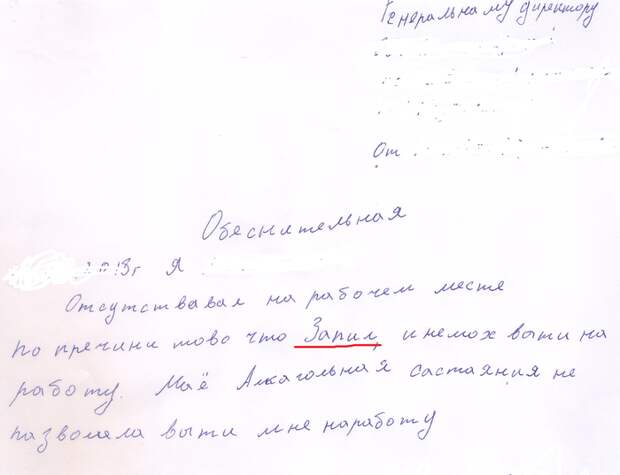 Генеральнаму директору
От
Обеснительная
2013г Я
Отсутствавал на рабочем месте
по пречини тово что Запил, и немох выти на
работу. Маё Алкагольная састаяния не
пазволела выти мне наработу